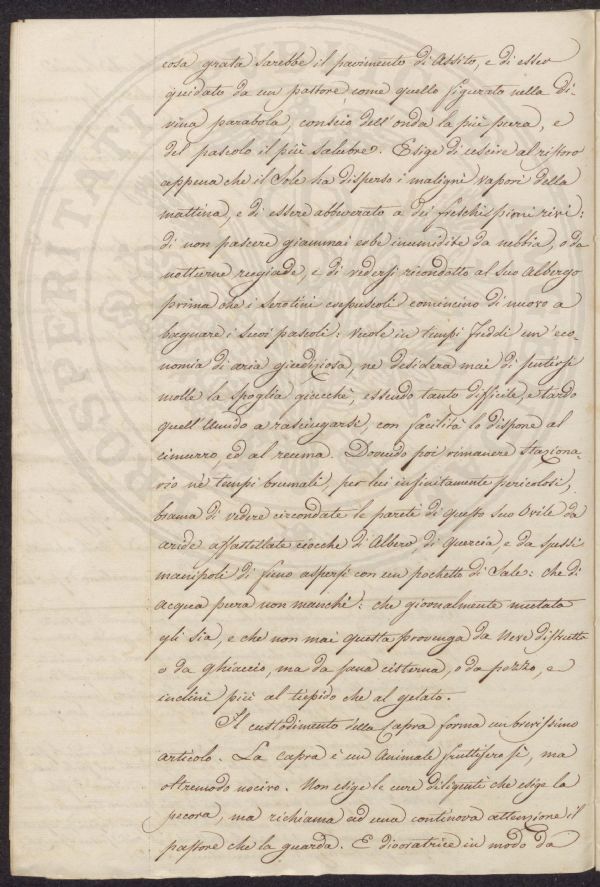 cosa grata sarebbe il pavimento di Assito, e di esser
guidato da un pastore come quello figurato nella di-
vina parabola, conscio dell'onda la più pura, e
del pascolo il più salubre. Esige di uscire al ristoro
appena che il Sole ha disperso i maligni vapori della
mattina, e di essere abbeverato a dei freschissimi rivi:
di non pascere giammai erbe inumidite da nebbia, o da
notturne rugiade, e di vedersi ricondotto al suo Albergo
prima che i serotini crepuscoli comincino di nuovo a
bagnare i suoi pascoli: vuole in tempi freddi un'eco-
nomia di aria giudiziosa, ne desidera mai di sentirsi
molle la spoglia giacchè, essendo tanto difficile, e tardo
quell'Umido a rasciugarsi, con facilità lo dispone al
cimurro, ed al reuma. Dovendo poi rimanere staziona-
rio nè tempi brumali, per lui infinitamente pericolosi,
brama di vedere circondate le pareti di questo suo Ovile da
aride affastellate ciocche di Albero, di quercia, e da spessi
manipoli di fieno aspersi con un pochetto di Sale: che di
acqua pura non manchi: che giornalmente mutata
gli sia, e che non mai questa provenga da Neve distrutta
o da ghiaccio, ma da sana cisterna, o da pozzo, e
inclini più al tiepido che al gelato.
Il custodimento della Capra forma un brevissimo
articolo. La Capra è un Animale fruttifero sì, ma
oltremodo nocivo. Non esige le cure diligenti che esige la
pecora, ma richiama ad una continova attenzione il
pastore che la guarda. È divoratrice in modo da